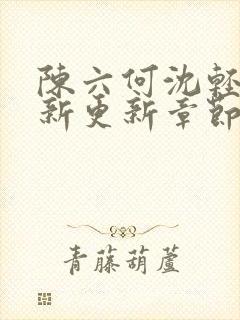 陳六何沈輕
新更新章節
青藤葫蘆